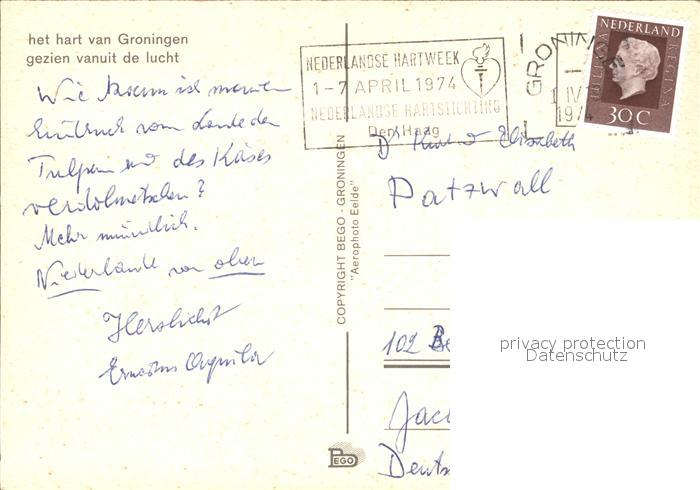 het hart van Groningen
gezien vanuit de lucht
Wie kann ich meinen
Eindruck vom Lande der
Tulpen und des Käses
verdolmetschen?
Mehr mündlich.
Niederlande von oben
Herzlichst
NEDERLANDSE HARTWEEK
1-7 APRIL 1974
NEDERLANDSE HARTSTICHTING
Den Haag
GRONINGEN
1 IV
1974
NEDERLAND
JULIANA REGINA
30 C
Dr Kurt u Elisabeth
Patzwall
102 Be
Jac
Deuts
COPYRIGHT BEGO - GRONINGEN
"Aerophoto Eelde"
BEGO
privacy protection
Datenschutz